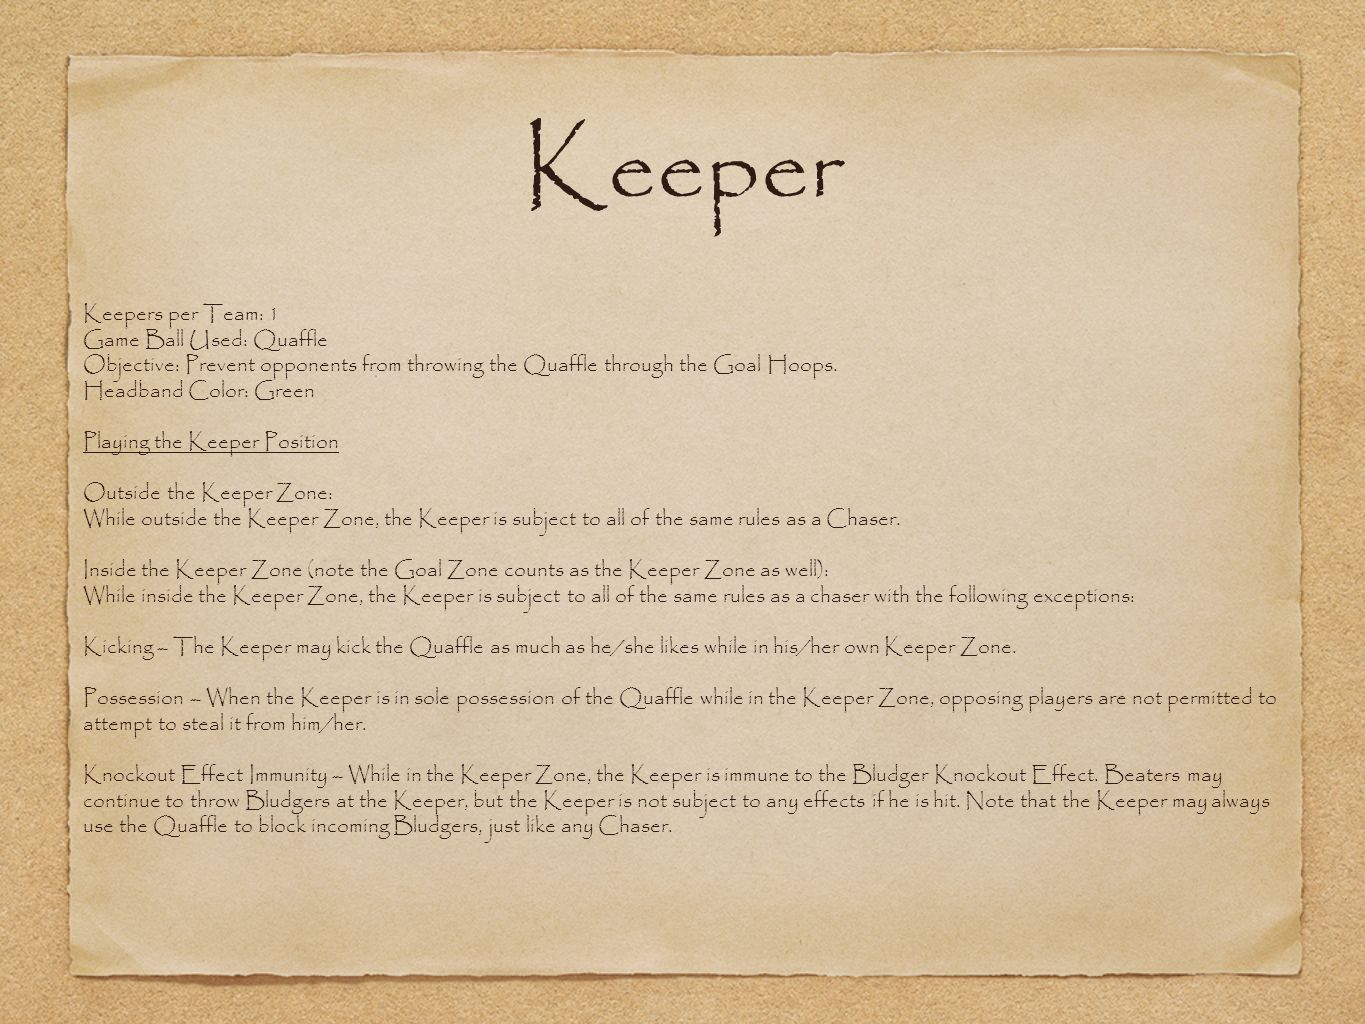 Keeper
Keepers per Team: 1
Game Ball Used: Quaffle
Objective: Prevent opponents from throwing the Quaffle through the Goal Hoops.
Headband Color: Green
Playing the Keeper Position
Outside the Keeper Zone:
While outside the Keeper Zone, the Keeper is subject to all of the same rules as a Chaser.
Inside the Keeper Zone (note the Goal Zone counts as the Keeper Zone as well):
While inside the Keeper Zone, the Keeper is subject to all of the same rules as a chaser with the following exceptions:
Kicking – The Keeper may kick the Quaffle as much as he/she likes while in his/her own Keeper Zone.
Possession – When the Keeper is in sole possession of the Quaffle while in the Keeper Zone, opposing players are not permitted to
attempt to steal it from him/her.
Knockout Effect Immunity – While in the Keeper Zone, the Keeper is immune to the Bludger Knockout Effect. Beaters may
continue to throw Bludgers at the Keeper, but the Keeper is not subject to any effects if he is hit. Note that the Keeper may always
use the Quaffle to block incoming Bludgers, just like any Chaser.